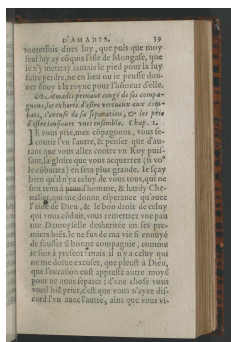 D'AMADIS. 39
toutesfois dites luy, que puis que moy
seul luy ay cõquis l'isle de Mongase, que
ie n'y mettray iamais le pied pour la luy
faire perdre, ne en lieu ou ie peusse don-
ner ennuy à la royne pour l'honeur d'elle.
Amadis prenant congé de ses compa-
gnons, les exhorte d'estre vertueux aux com-
bats, s'excuse de sa separation, & les prie
d'estre tousiours vnis ensemble. Chap. 1.
IE vous prie, mes cõpagnons, vous se-
courir l'vn l'autre, & penser que d'au-
tant que vous allez contre vn Roy puis-
sant, la gloire que vous acquerrez (si vo'
le cõbattez) en sera plus grande. Ie sçay
bien qu'il n'y a celuy de vous tous, qui ne
soit tenu à preud'homme, & hardy Che-
ualier, qui me donne esperance qu'auec
l'aide de Dieu, & le bon droit de celuy
qui vous cõduit, vous remettrez vne pau
ure Damoyselle desheritee en ses pre-
miers biẽs. Ie ne fus de ma vie si ennuyé
de fausser si bonne compagnie, comme
ie suis à present: mais il n'y a celuy qui
ne me doiue excuser, que pleust à Dieu,
que l'occasion eust appresté autre moyé
pour ne nous separer: d'vne chose vous
veuil bie prier, c'est que vous n'ayez dis-
cord l'vn auec l'autre, ains que vous vi-